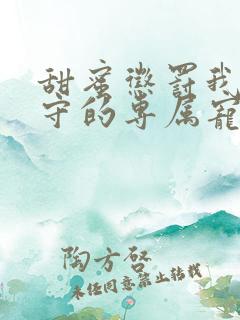 甜蜜惩罚我
守的专属宠
陶方启
未经同意禁止转载